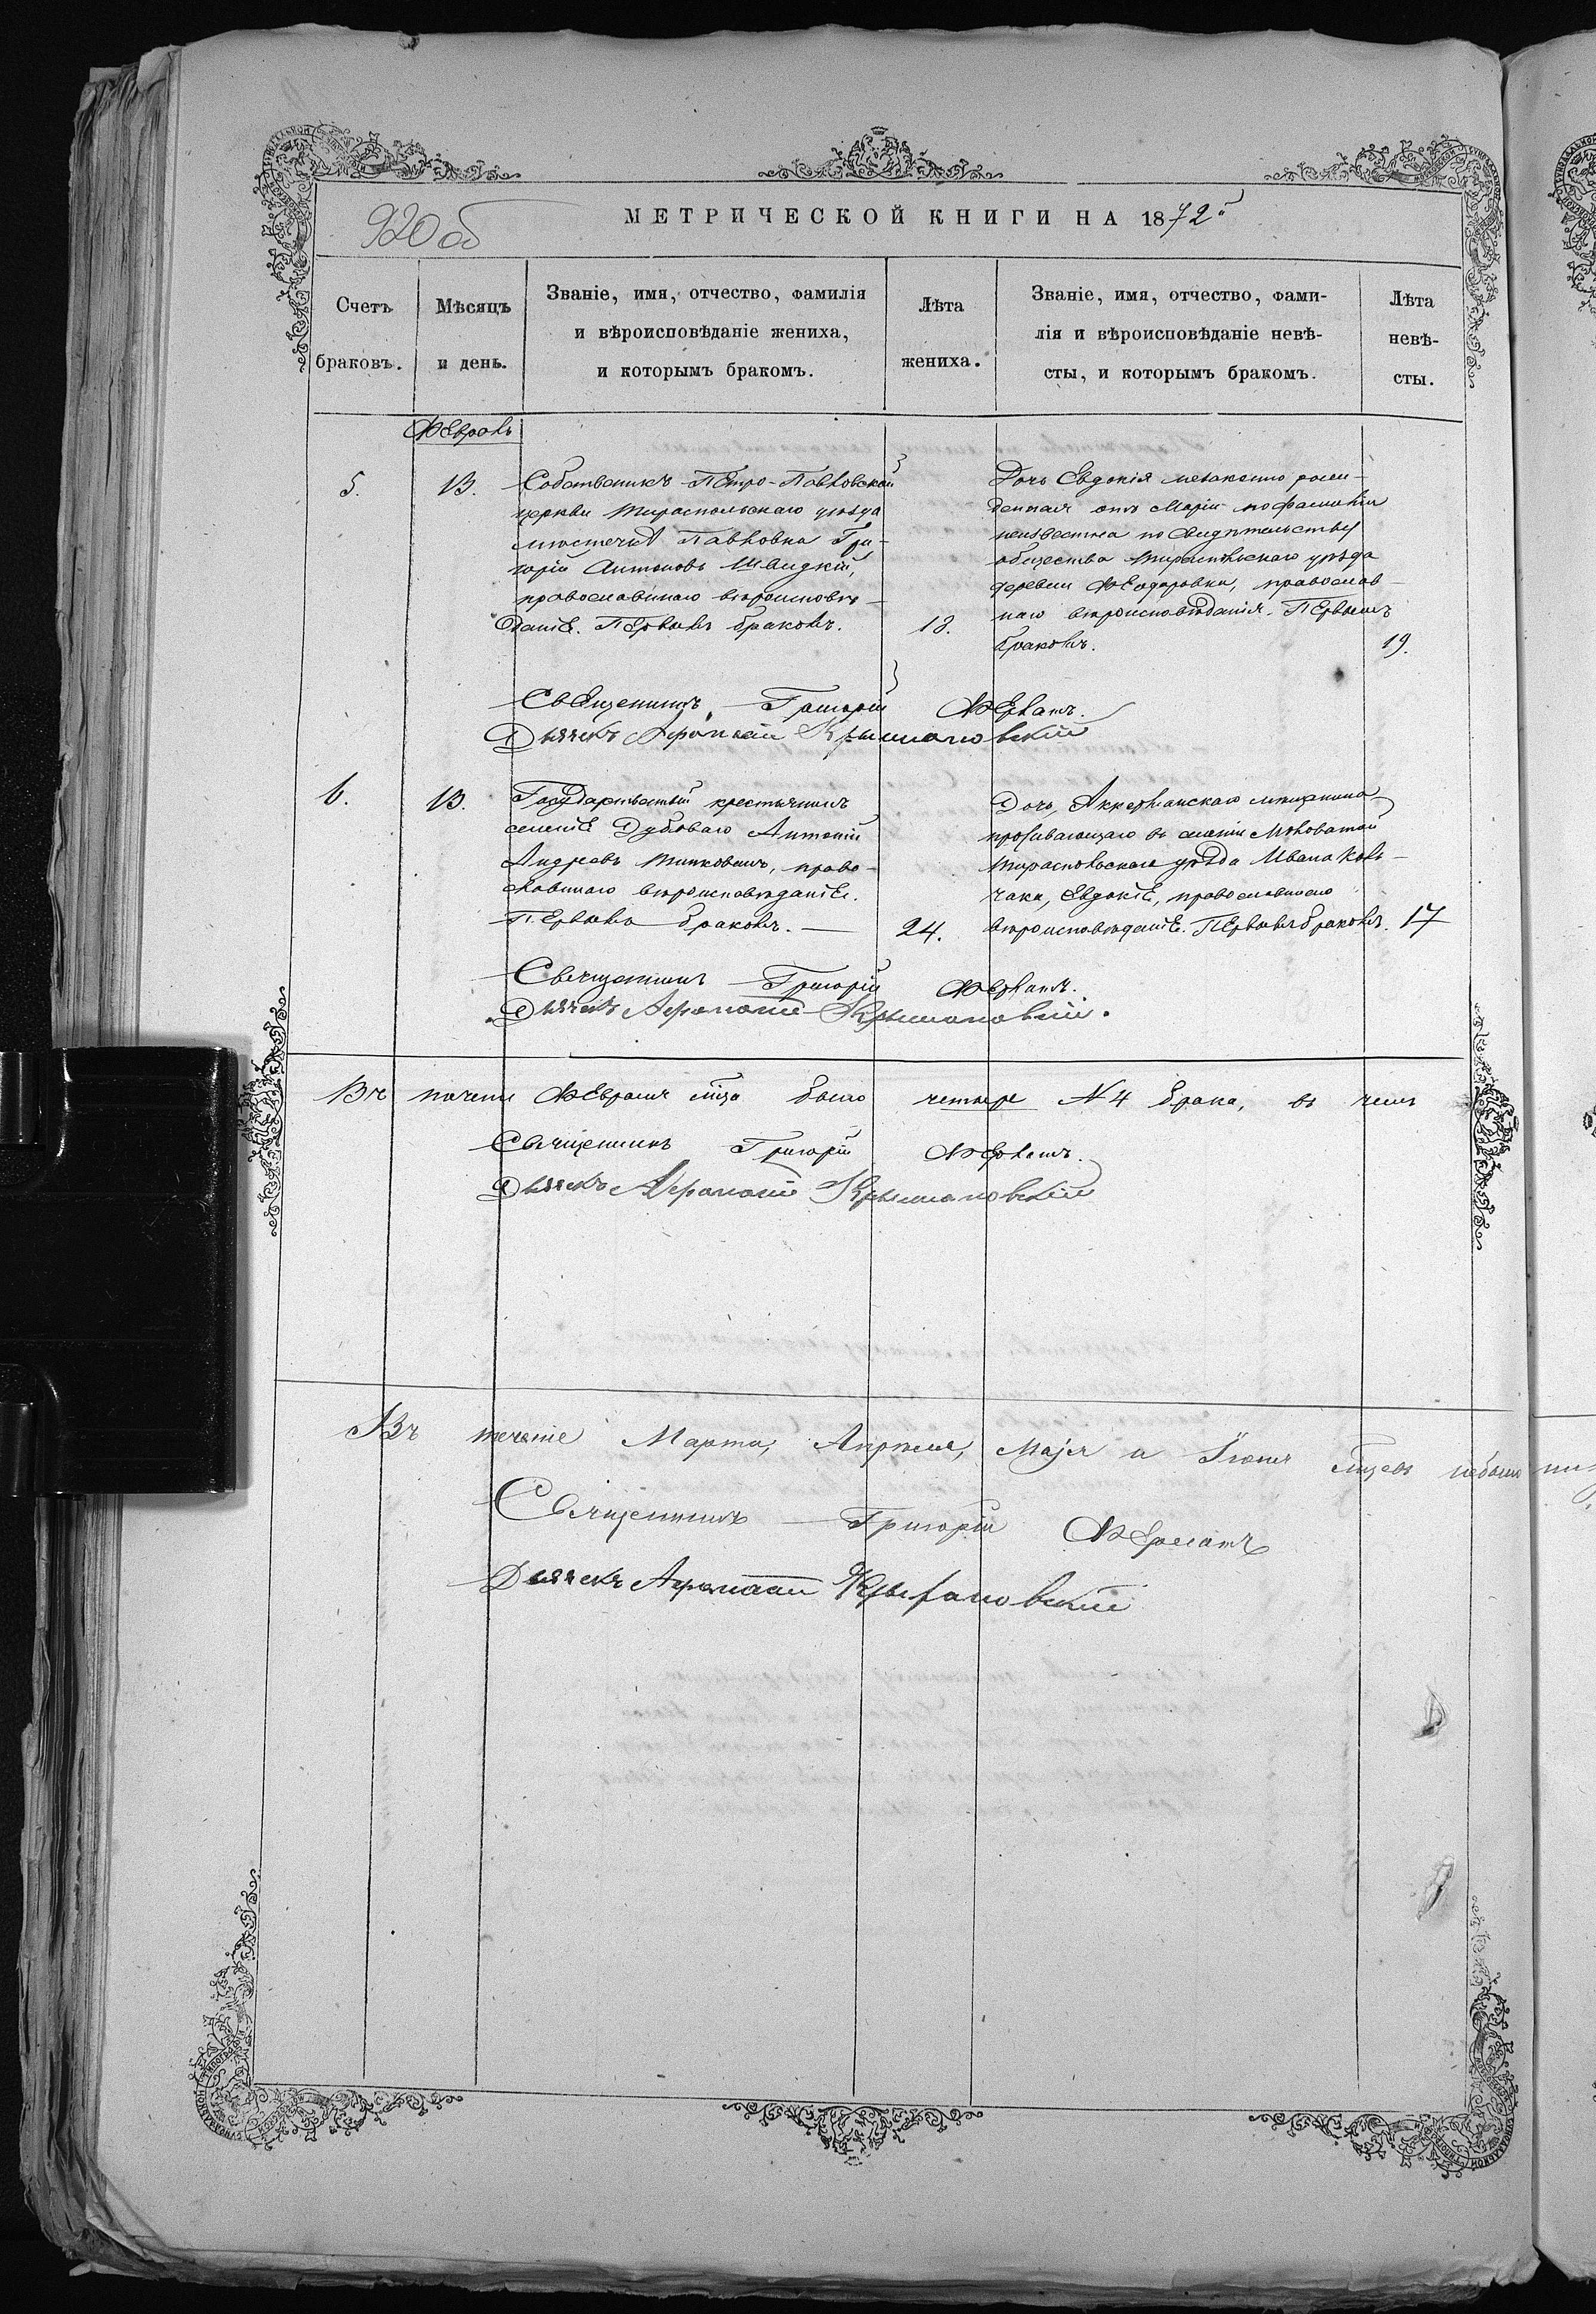 920 об
МЕТРИЧЕСКОЙ КНИГИ НА 1872
Счетъ браковъ.
Мѣсяцъ и день.
Званіе, имя, отчество, фамилія
и вѣроисповѣданіе жениха,
и которымъ бракомъ.
Лѣта жениха.
Званіе, имя, отчество, фами-
лія и вѣроисповѣданіе невѣ-
сты, и которымъ бракомъ.
Лѣта невѣ-
сты.
Февраль
5.
13.
Собственикъ Петро-Павловской
церкви Тираспольскаго уѣзда
мѣстечка Павловка Гри-
горій Антоновъ Швидкій,
православнаго вѣроисповѣ-
даніе. Первымъ бракомъ.
18.
Дочь Евдокія незаконно рож-
денная отъ Маріи пофамиліи
неизвестна по свидѣтельству
общества Тираспольскаго уѣзда
деревни Феодоровки, православ-
наго вѣроисповѣданія. Первымъ
бракомъ.
19.
Священникъ Григорій
Дьячекъ
6.
13.
Государственый крестьянинъ
селеніе Дубоваго Антоній
Андреевъ, право-
славнаго вѣроисповѣданіе.
Первымъ бракомъ.
24.
Дочь, Аккерманскаго мѣщанина
проживающаго въ селеніи
Тираспольскаго уѣзда Ивана Ковь-
чака, Евдокіе, православнаго
вѣроисповѣданіе. Первымъ бракомъ.
17
Священникъ Григорій
Дьячекъ
Въ течени Февраля мца было четыре N 4 брака, въ чемъ
Священникъ Григорій
Дьячекъ
Въ теченіе Марта, Апреля, Маjя и Іюня мцевъ небыло
Священникъ Григорій
Дьячекъ